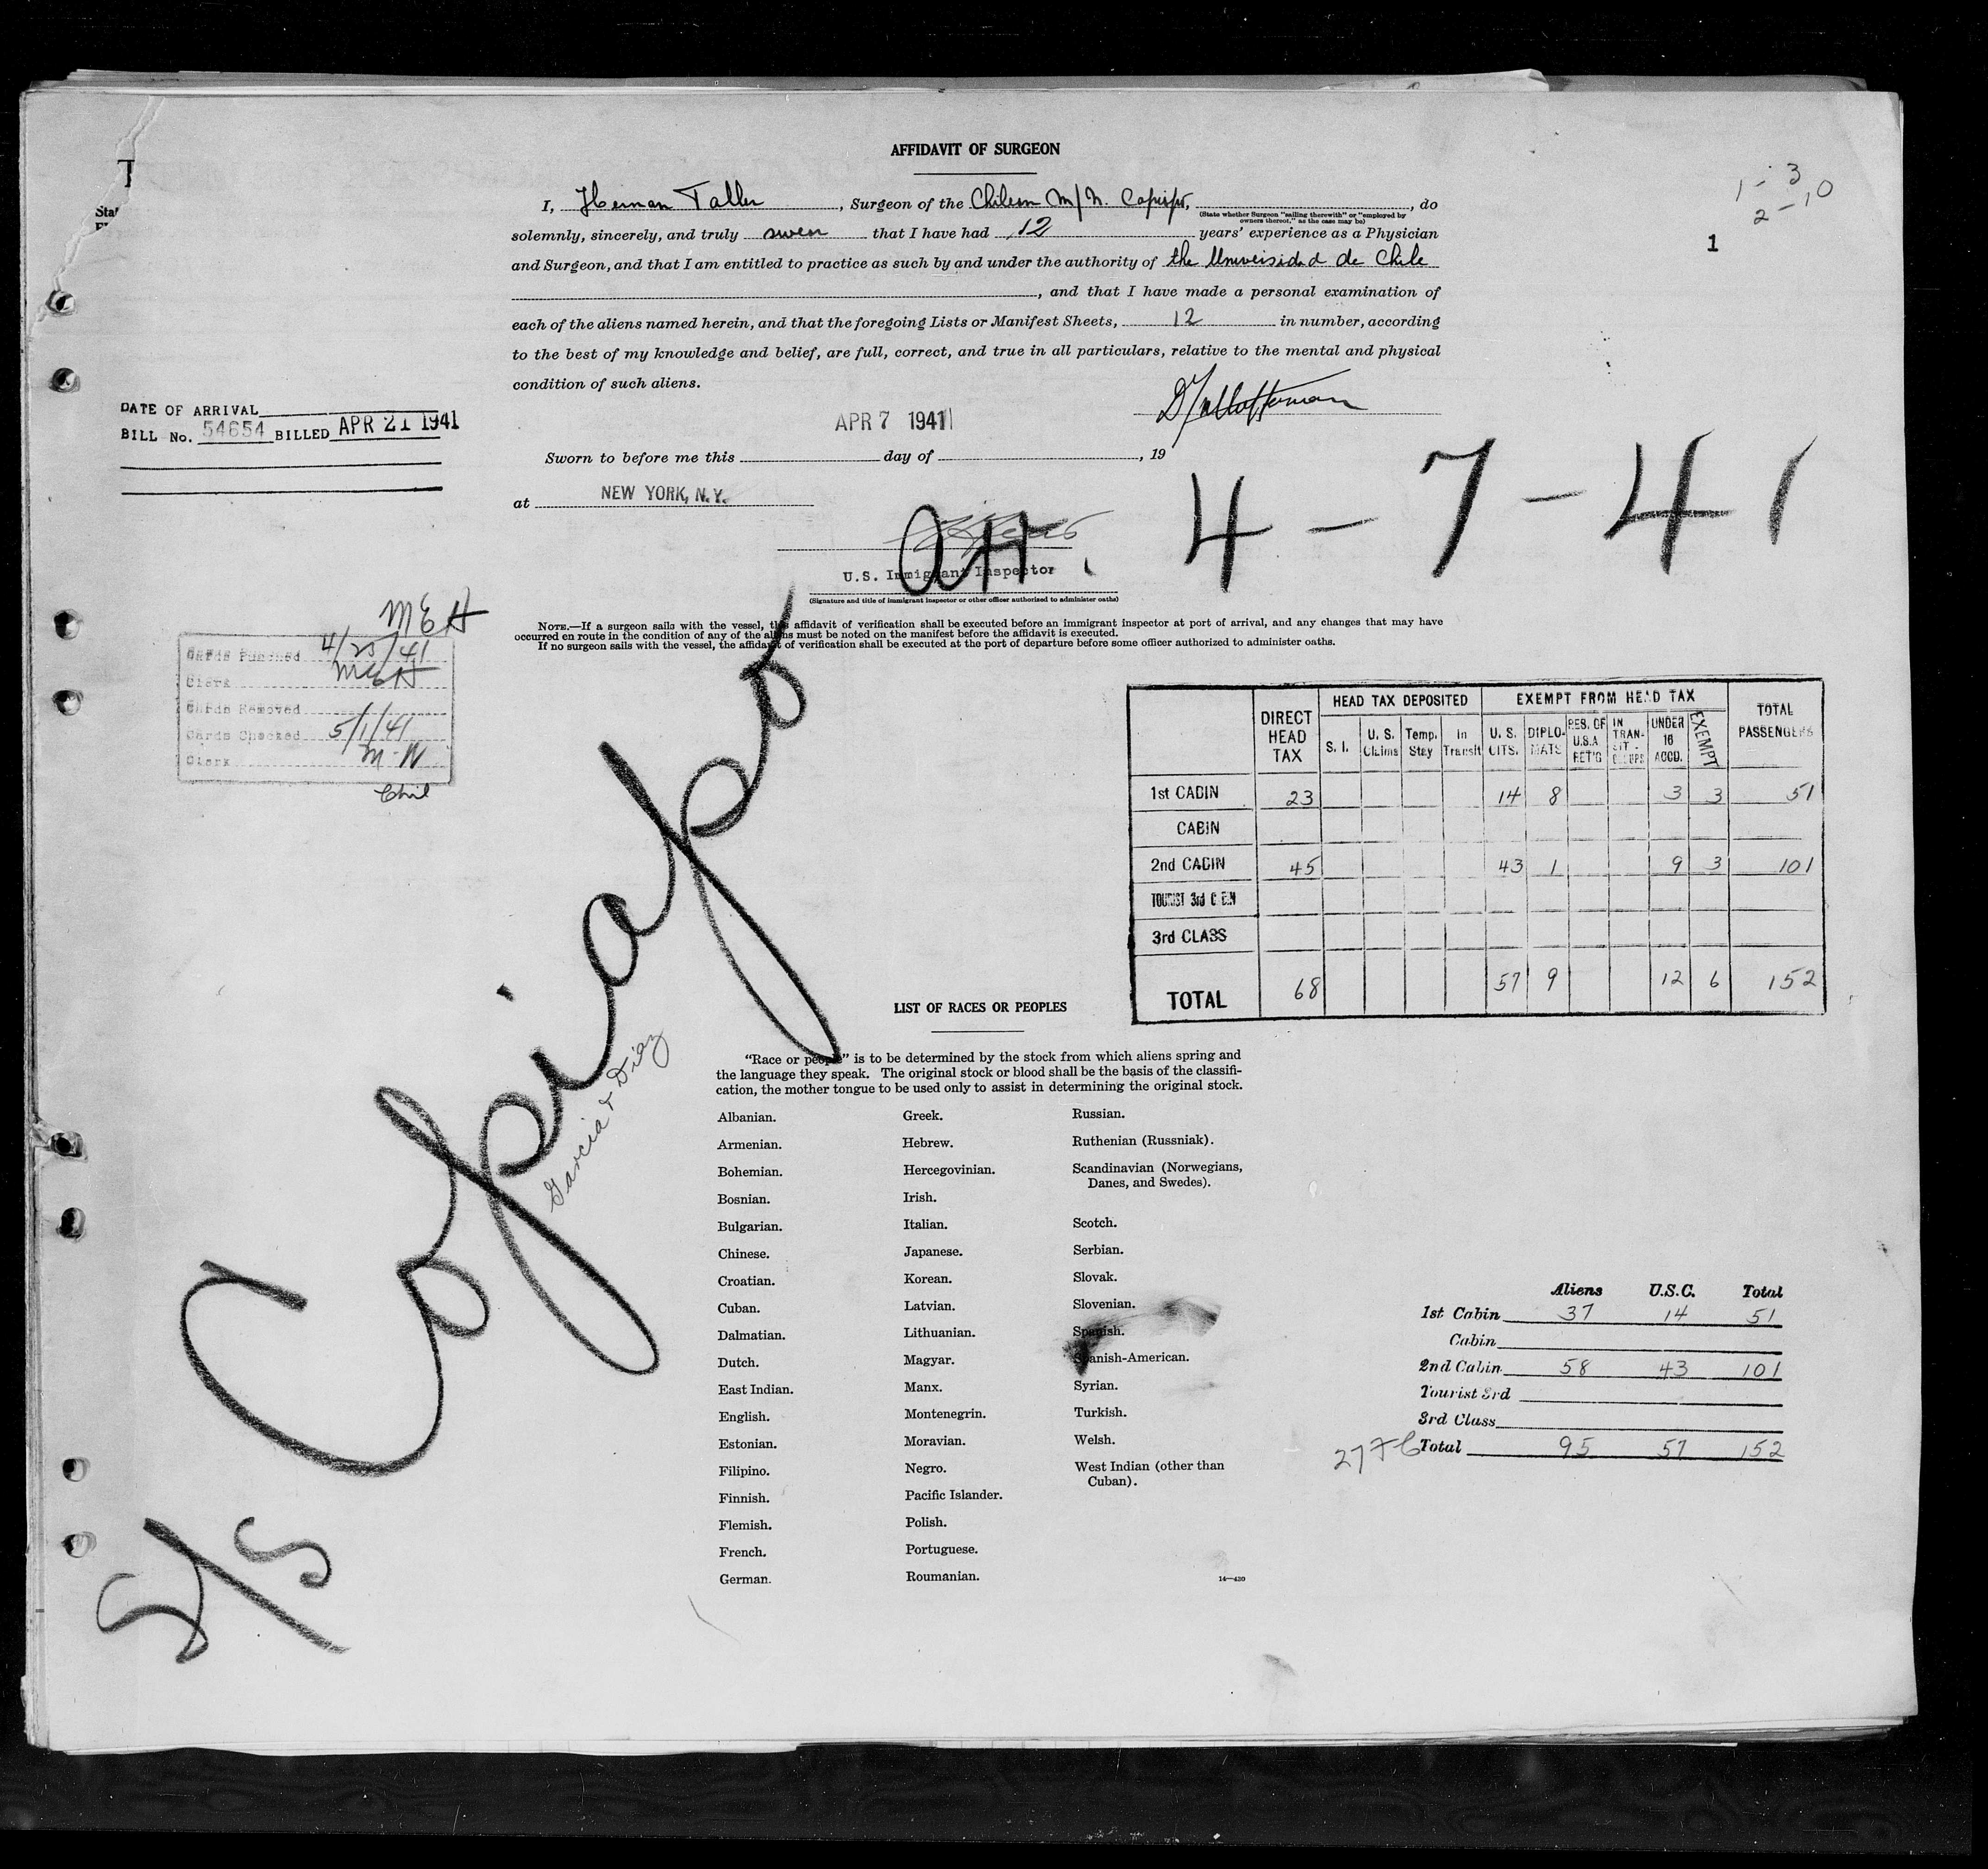 AFFIDAVIT OF SURGEON
I, Herman Taller, Surgeon of the Chilean M/N. Copiapo, , do
(State whether Surgeon "sailing therewith" or "employed by
owners thereof," as the case may be)
solemnly, sincerely, and truly swear that I have had 12 years' experience as a Physician
and Surgeon, and that I am entitled to practice as such by and under the authority of the Universidad de Chile
, and that I have made a personal examination of
each of the aliens named herein, and that the foregoing Lists or Manifest Sheets, 12 in number, according
to the best of my knowledge and belief, are full, correct, and true in all particulars, relative to the mental and physical
condition of such aliens.
1 - 3
2 - 10
1
DATE OF ARRIVAL
BILL No. 54654 BILLED APR 21 1941
APR 7 1941
Sworn to before me this day of , 19
at NEW YORK, N.Y.
arr. 4-7-41
U.S. Immigrant Inspector
(Signature and title of immigrant inspector or other officer authorized to administer oaths)
NOTE.—If a surgeon sails with the vessel, this affidavit of verification shall be executed before an immigrant inspector at port of arrival, and any changes that may have
occurred en route in the condition of any of the aliens must be noted on the manifest before the affidavit is executed.
If no surgeon sails with the vessel, the affidavit of verification shall be executed at the port of departure before some officer authorized to administer oaths.
MEH
Cards Punched 4/25/41
Clerk MEH
Cards Removed
Cards Checked 5/1/41
Clerk M-W
Chil
S/S Copiapo
Garcia & Diaz
DIRECT HEAD TAX
HEAD TAX DEPOSITED
EXEMPT FROM HEAD TAX
TOTAL PASSENGERS
S. I.
U. S. Claims
Temp. Stay
In Transit
U. S. CITS.
DIPLO-MATS
RES. OF U.S.A RET'G
IN TRAN-SIT
UNDER 16 ACCD.
EXEMPT
1st CABIN 23 14 8 3 3 51
CABIN
2nd CABIN 45 43 1 9 3 101
TOURIST 3rd CABIN
3rd CLASS
TOTAL 68 57 9 12 6 152
LIST OF RACES OR PEOPLES
"Race or people" is to be determined by the stock from which aliens spring and
the language they speak. The original stock or blood shall be the basis of the classifi-
cation, the mother tongue to be used only to assist in determining the original stock.
Albanian.
Armenian.
Bohemian.
Bosnian.
Bulgarian.
Chinese.
Croatian.
Cuban.
Dalmatian.
Dutch.
East Indian.
English.
Estonian.
Filipino.
Finnish.
Flemish.
French.
German.
Greek.
Hebrew.
Hercegovinian.
Irish.
Italian.
Japanese.
Korean.
Latvian.
Lithuanian.
Magyar.
Manx.
Montenegrin.
Moravian.
Negro.
Pacific Islander.
Polish.
Portuguese.
Roumanian.
Russian.
Ruthenian (Russniak).
Scandinavian (Norwegians,
Danes, and Swedes).
Scotch.
Serbian.
Slovak.
Slovenian.
Spanish.
Spanish-American.
Syrian.
Turkish.
Welsh.
West Indian (other than
Cuban).
14—430
Aliens U.S.C. Total
1st Cabin 37 14 51
Cabin
2nd Cabin 58 43 101
Tourist 3rd
3rd Class
Total 95 57 152